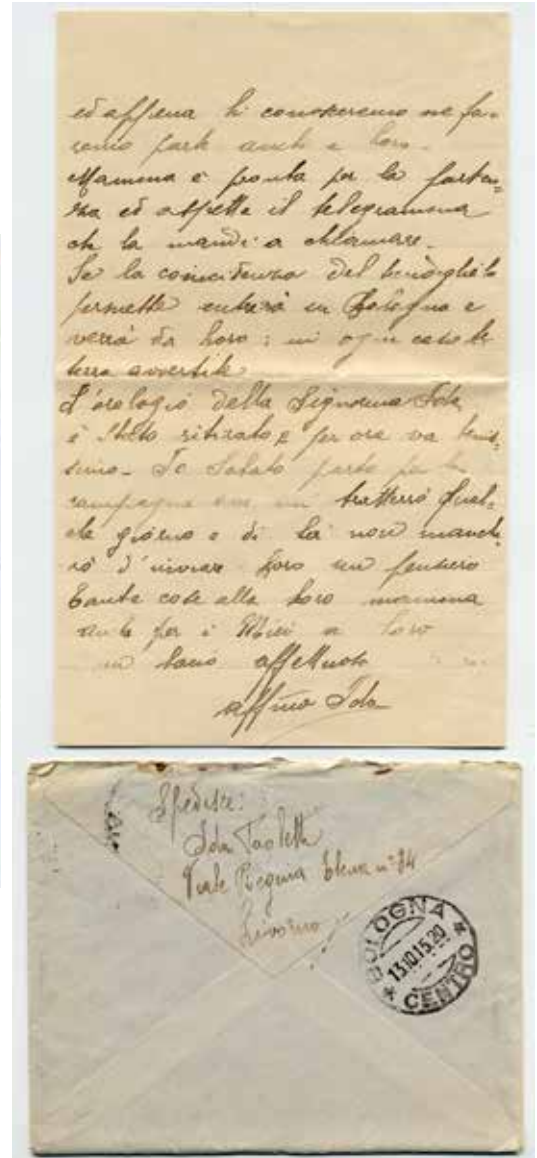 ed appena li conosceremo ne fa-
remo parte anche a loro.
Mamma è pronta per la parten-
za ed aspetta il telegramma
che la mandi a chiamare.
Se la coincidenza del
permette entrerà in Bologna e
verrà da loro; in ogni caso le
terrà avvertite
L'orologio della Signorina Ida
è stato ritirato e per ora va benis-
simo. Io Sabato parto per la
campagna ove mi tratterrò qual-
che giorno e di là non manche-
rò d'inviar loro un pensiero
Tante cose alla loro mamma
anche per i Miei a loro
un bacio affettuoso
aff.ma Ida
Spedisce:
Ida Paoletti
Viale Regina Elena n° 84
Livorno
BOLOGNA
13.10.15.20
* CENTRO *